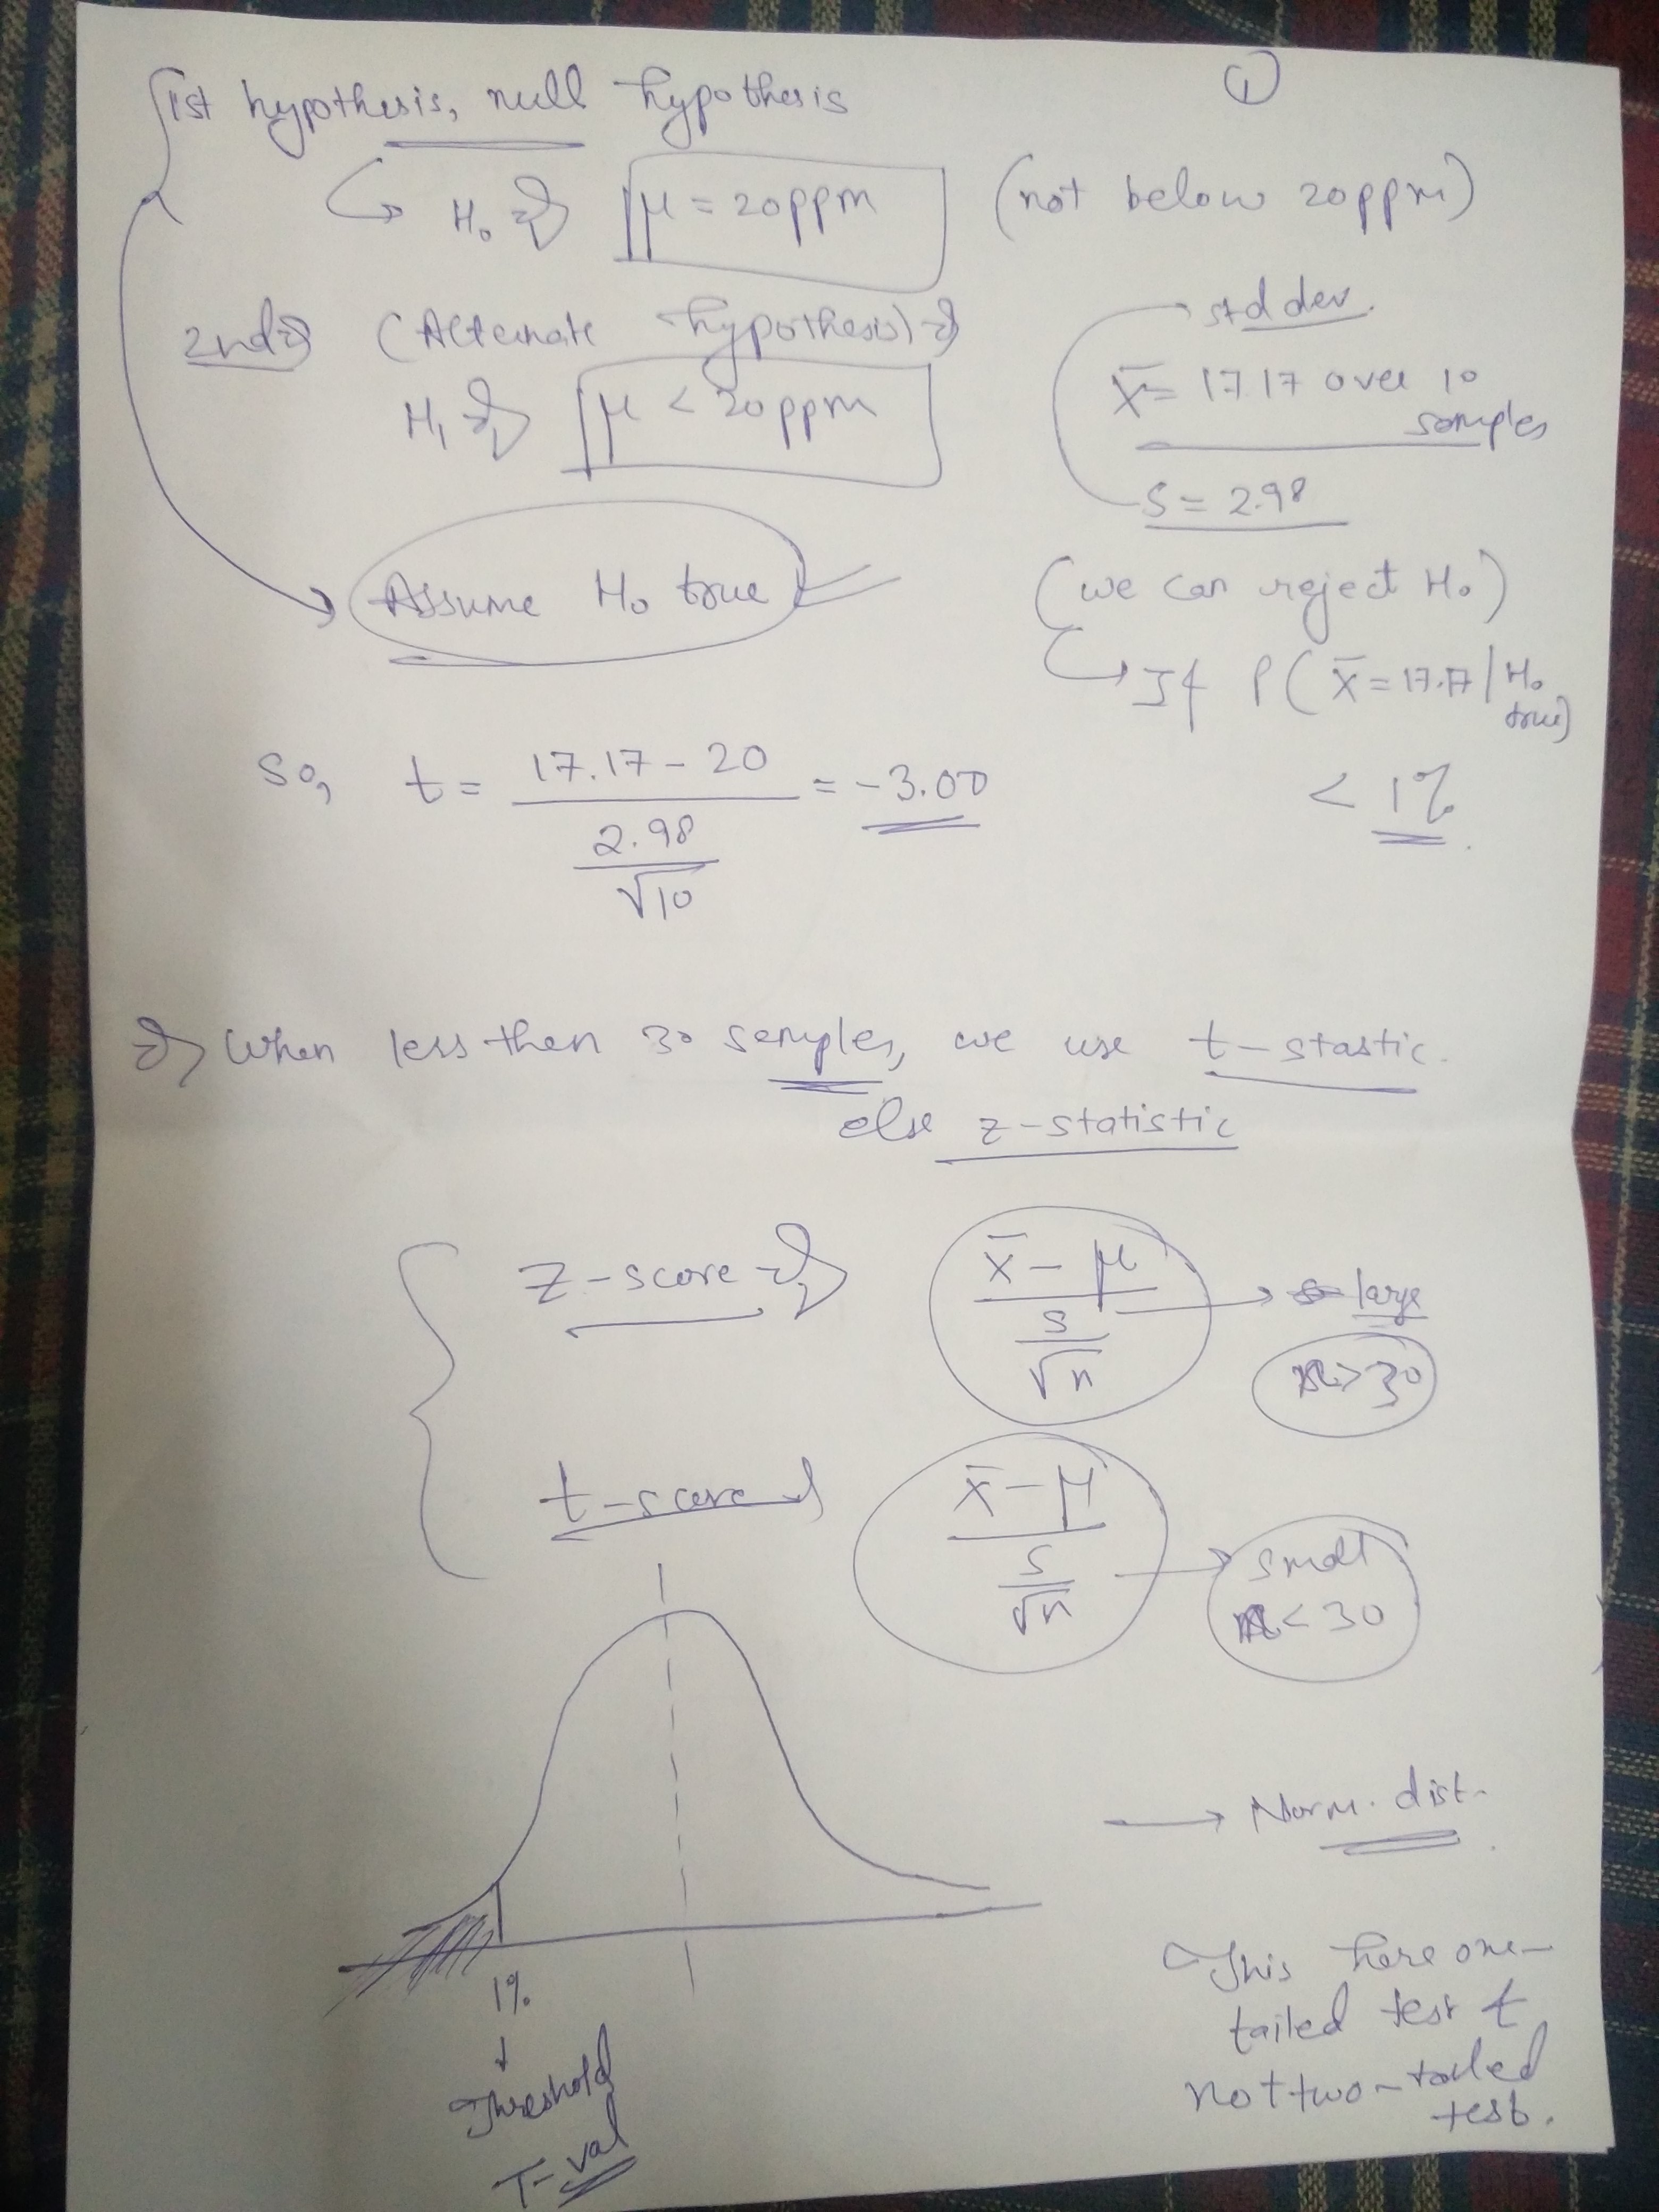 1st hypothesis, null hypothesis
①
H₀ ⇒ μ = 20ppm (not below 20ppm)
2nd ⇒ (Alternate hypothesis) ⇒
H₁ ⇒ μ < 20ppm
std dev.
x̄ = 17.17 over 10
samples
S = 2.98
Assume H₀ true
(we can reject H₀)
If P(x̄ = 17.17 | H₀
true)
< 1%
So, t = (17.17 - 20) / (2.98 / √10) = -3.00
⇒ When less then 30 samples, we use t-stastic.
else z-statistic
z-score ⇒ (x̄ - μ) / (s / √n) → large
n > 30
t-score ⇒ (x̄ - μ) / (s / √n) → small
n < 30
→ Norm. dist.
1%
↓
Threshold
T-val
This here one-
tailed test &
not two-tailed
test.